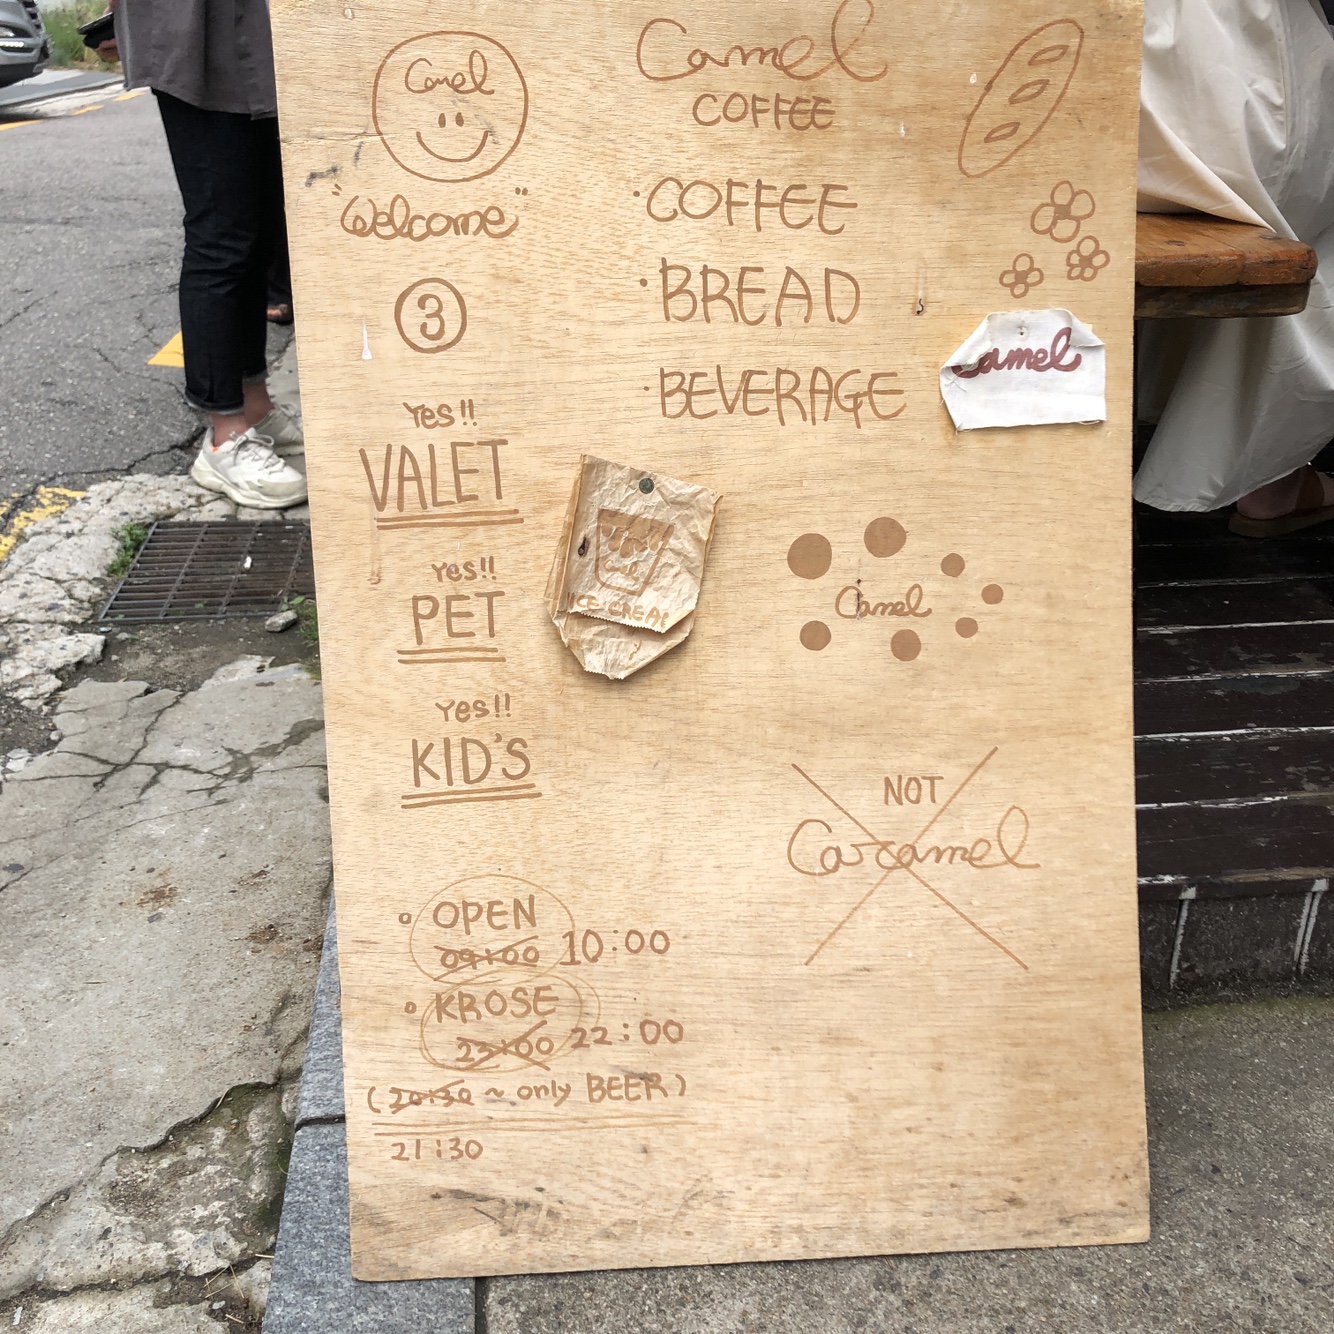 Camel
"Welcome"
3
Yes!!
VALET
Yes!!
PET
Yes!!
KID'S
OPEN
09:00 10:00
KROSE
23:00 22:00
(20:30 ~ only BEER)
21:30
Camel
COFFEE
·COFFEE
·BREAD
·BEVERAGE
Camel
ICE CREAM
Camel
NOT
Caramel